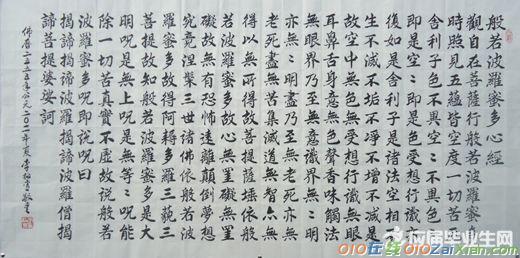 般若波羅蜜多心經
觀自在菩薩行般若波羅蜜多
時照見五蘊皆空度一切苦厄
舍利子色不異空〻不異色〻
即是空〻即是色受想行識亦
復如是舍利子是諸法空相不
生不滅不垢不淨不增不減是
故空中無色無受想行識無眼
耳鼻舌身意無色聲香味觸法
無眼界乃至無意識界無〻明
亦無〻明盡乃至無老死亦無
老死盡無苦集滅道無智亦無
得以無所得故菩提薩埵依般
若波羅蜜多故心無罣礙無罣
礙故無有恐怖遠離顛倒夢想
究竟涅槃三世諸佛依般若波
羅蜜多故得阿耨多羅三藐三
菩提故知般若波羅蜜多是大
明呪是無上呪是無等〻呪能
除一切苦真實不虛故說般若
波羅蜜多呪即說呪曰
揭諦揭諦波羅揭諦波羅僧揭
諦菩提娑婆訶
佛曆二五五五年公元二〇一一年夏李
敬書
应届毕业生网
010在线
010ZaiXian.com